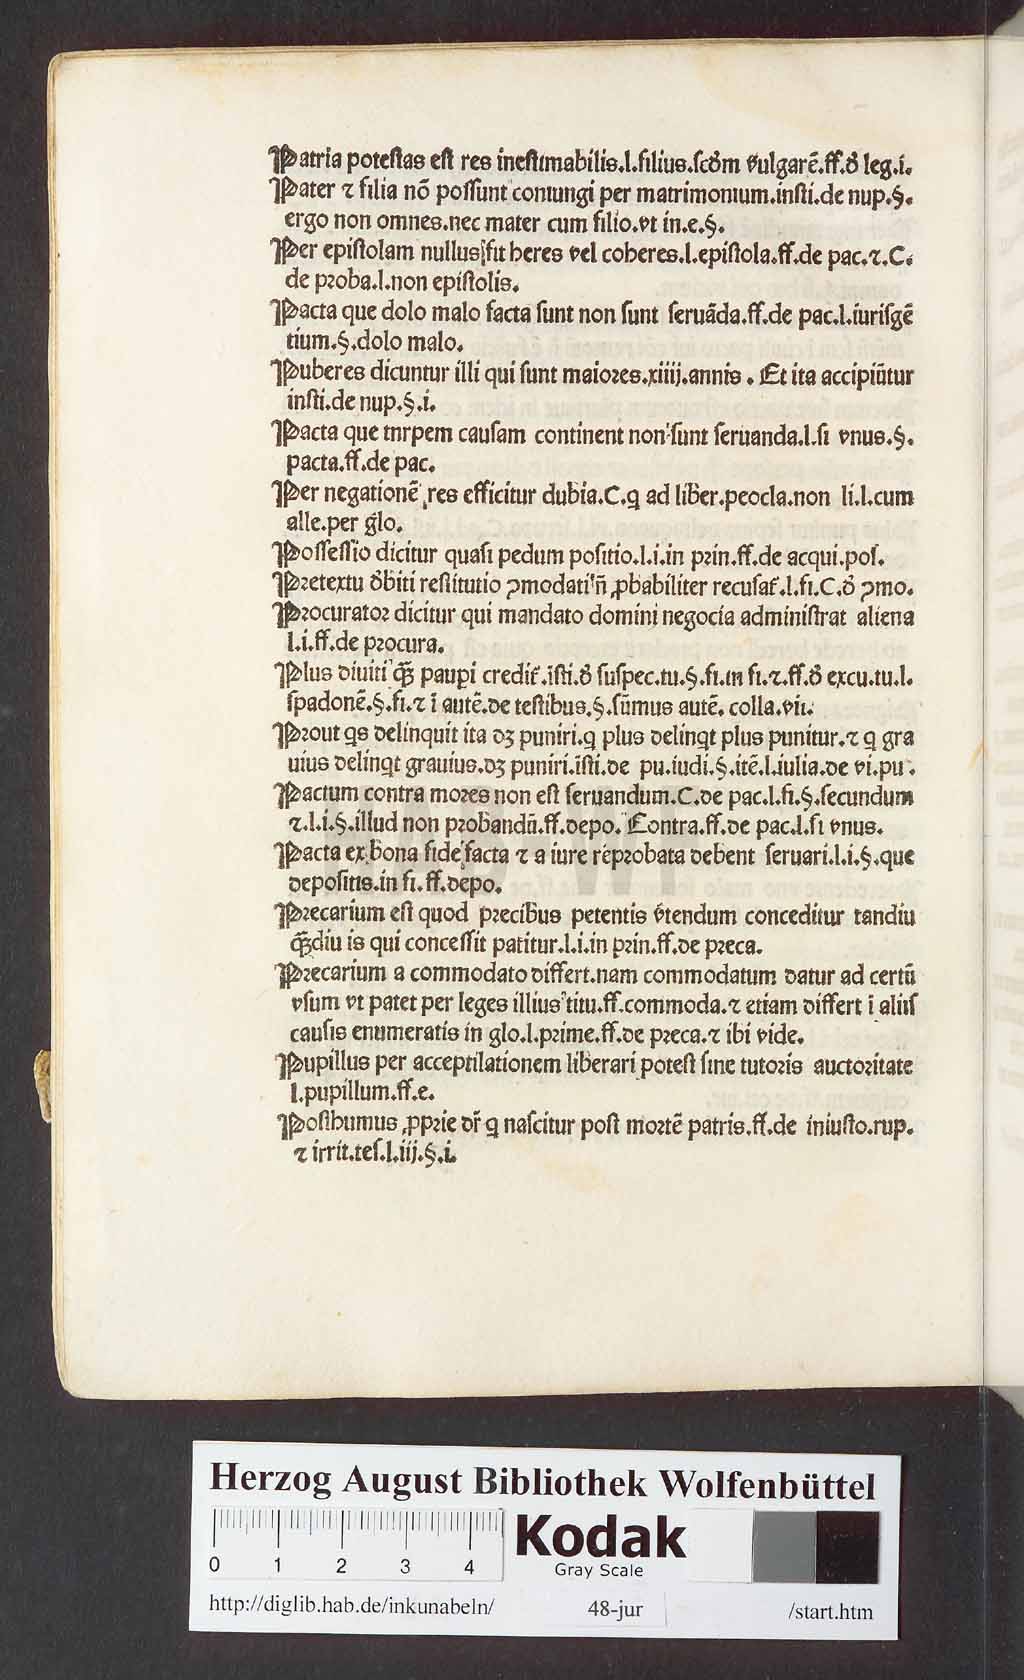 Patria potestas est res inestimabilis.l.filius.scďm vulgarē.ff.ď leg.i.
Pater ⁊ filia nō possunt coniungi per matrimonium.insti.de nup.§.
ergo non omnes.nec mater cum filio.vt in.e.§.
Per epistolam nullus fit heres vel coheres.l.epistola.ff.de pac.⁊.C.
de proba.l.non epistolis.
Pacta que dolo malo facta sunt non sunt seruāda.ff.de pac.l.iurisgē
tium.§.dolo malo.
Puberes dicuntur illi qui sunt maiores.xiiij.annis. Et ita accipiūtur
insti.de nup.§.i.
Pacta que tnrpem causam continent non sunt seruanda.l.si vnus.§.
pacta.ff.de pac.
Per negationē res efficitur dubia.C.q ad liber.peocla.non li.l.cum
alle.per glo.
Possessio dicitur quasi pedum positio.l.i.in prin.ff.de acqui.pos.
Pretextu ďbiti restitutio ꝯmodati n̄ ꝓbabiliter recusat̃.l.fi.C.ď ꝯmo.
Procurator dicitur qui mandato domini negocia administrat aliena
l.i.ff.de procura.
Plus diuiti ꝙ̄ paupi credit̃.isti.ď suspec.tu.§.fi.in fi.⁊.ff.ď excu.tu.l.
spadonē.§.fi.⁊ ī autē.de testibus.§.sūmus autē. colla.vii.
Prout qs delinquit ita dꝫ puniri.q plus delinqt plus punitur.⁊ q gra
uius delinqt grauius.dꝫ puniri.īsti.de pu.iudi.§.itē.l.iulia.de vi.pu.
Pactum contra mores non est seruandum.C.de pac.l.fi.§.secundum
⁊.l.i.§.illud non probandū.ff.depo. Contra.ff.de pac.l.si vnus.
Pacta ex bona fide facta ⁊ a iure reprobata debent seruari.l.i.§.que
depositis.in fi.ff.depo.
Precarium est quod precibus petentis vtendum conceditur tandiu
ꝙ̄diu is qui concessit patitur.l.i.in prin.ff.de preca.
Precarium a commodato differt.nam commodatum datur ad certū
vsum vt patet per leges illius titu.ff.commoda.⁊ etiam differt ī aliis
causis enumeratis in glo.l.prime.ff.de preca.⁊ ibi vide.
Pupillus per acceptilationem liberari potest sine tutoris auctoritate
l.pupillum.ff.e.
Posthumus ꝓprie dr̄ q nascitur post mortē patris.ff.de iniusto.rup.
⁊ irrit.tes.l.iij.§.i.
HAB-WF
Herzog August Bibliothek Wolfenbüttel
0 1 2 3 4
Kodak
Gray Scale
http://diglib.hab.de/inkunabeln/ 48-jur /start.htm